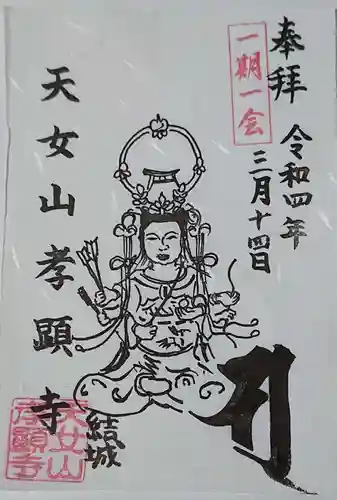 奉拝
一期一会
令和四年
三月十四日
天女山孝顕寺
結城
天女山
孝顕寺